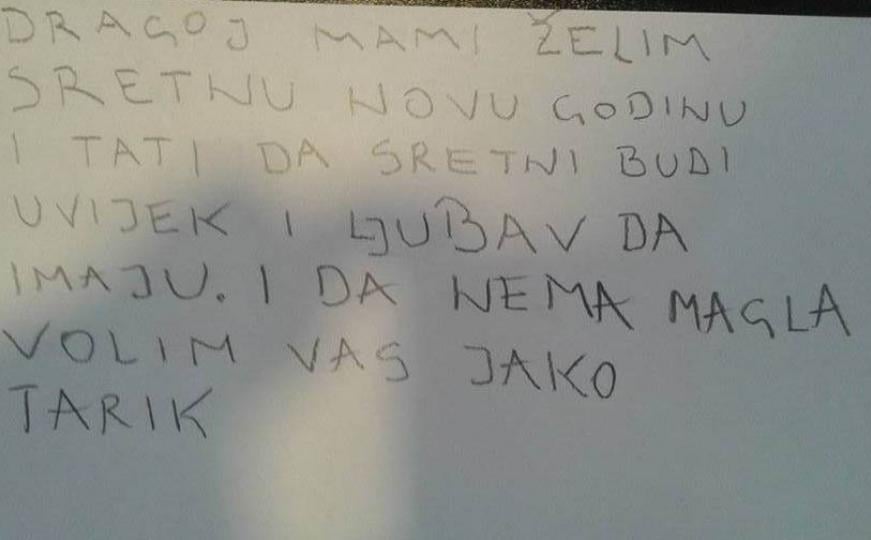 DRAGOJ MAMI ŽELIM
SRETNU NOVU GODINU
I TATI DA SRETNI BUDI
UVIJEK I LJUBAV DA
IMAJU. I DA NEMA MAGLA
VOLIM VAS JAKO
TARIK